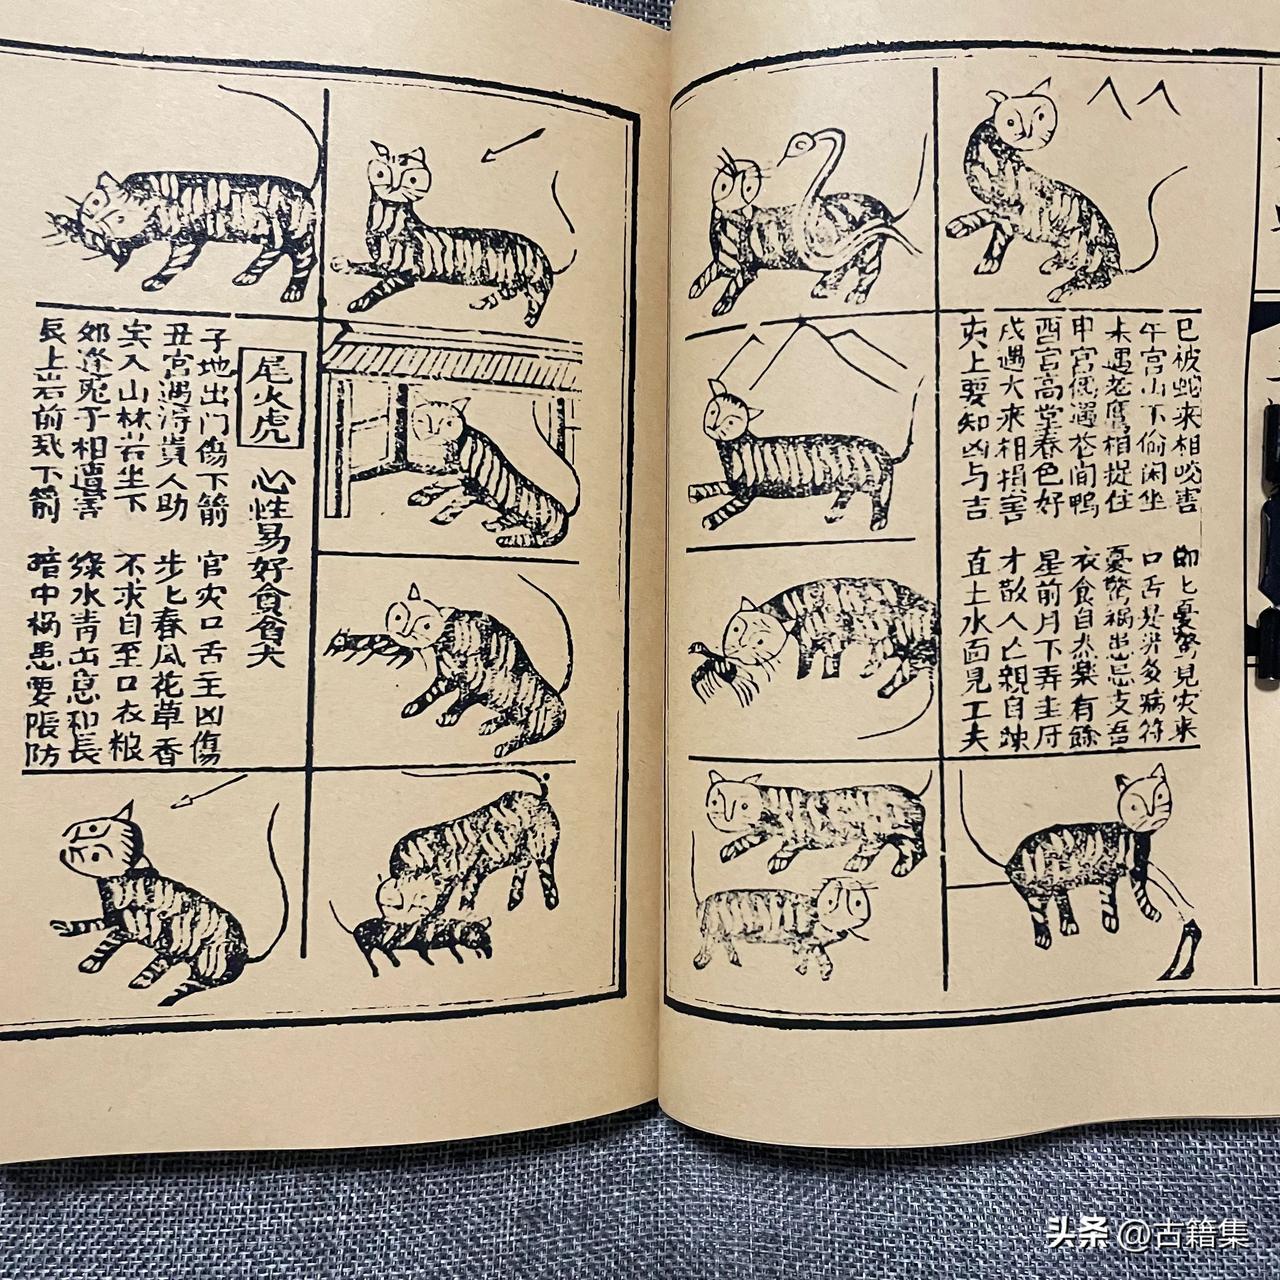 尾火虎
心性易好食貪犬
子地出門傷下箭 官灾口舌主凶傷
丑宫遇得貴人助 步上春風花草香
寅入山林岩坐下 不求自至口衣粮
郊逢兎子相遭害 綠水青出怠和長
辰上岩前 下箭 暗中禍患要隄防
巳被蛇来相咬害 即上憂驚見灾来
午宫山下偷闲坐 口舌是非多病符
未遇老鷹相捉住 憂驚禍患忌支吾
申宫偶遇 間鴨 衣食自然樂有餘
酉宫高堂春色好 星前月下弄圭
戌遇犬来相損害 才散人亡親自踈
亥上要知凶与吉 直土水面見工夫
头条 @古籍集